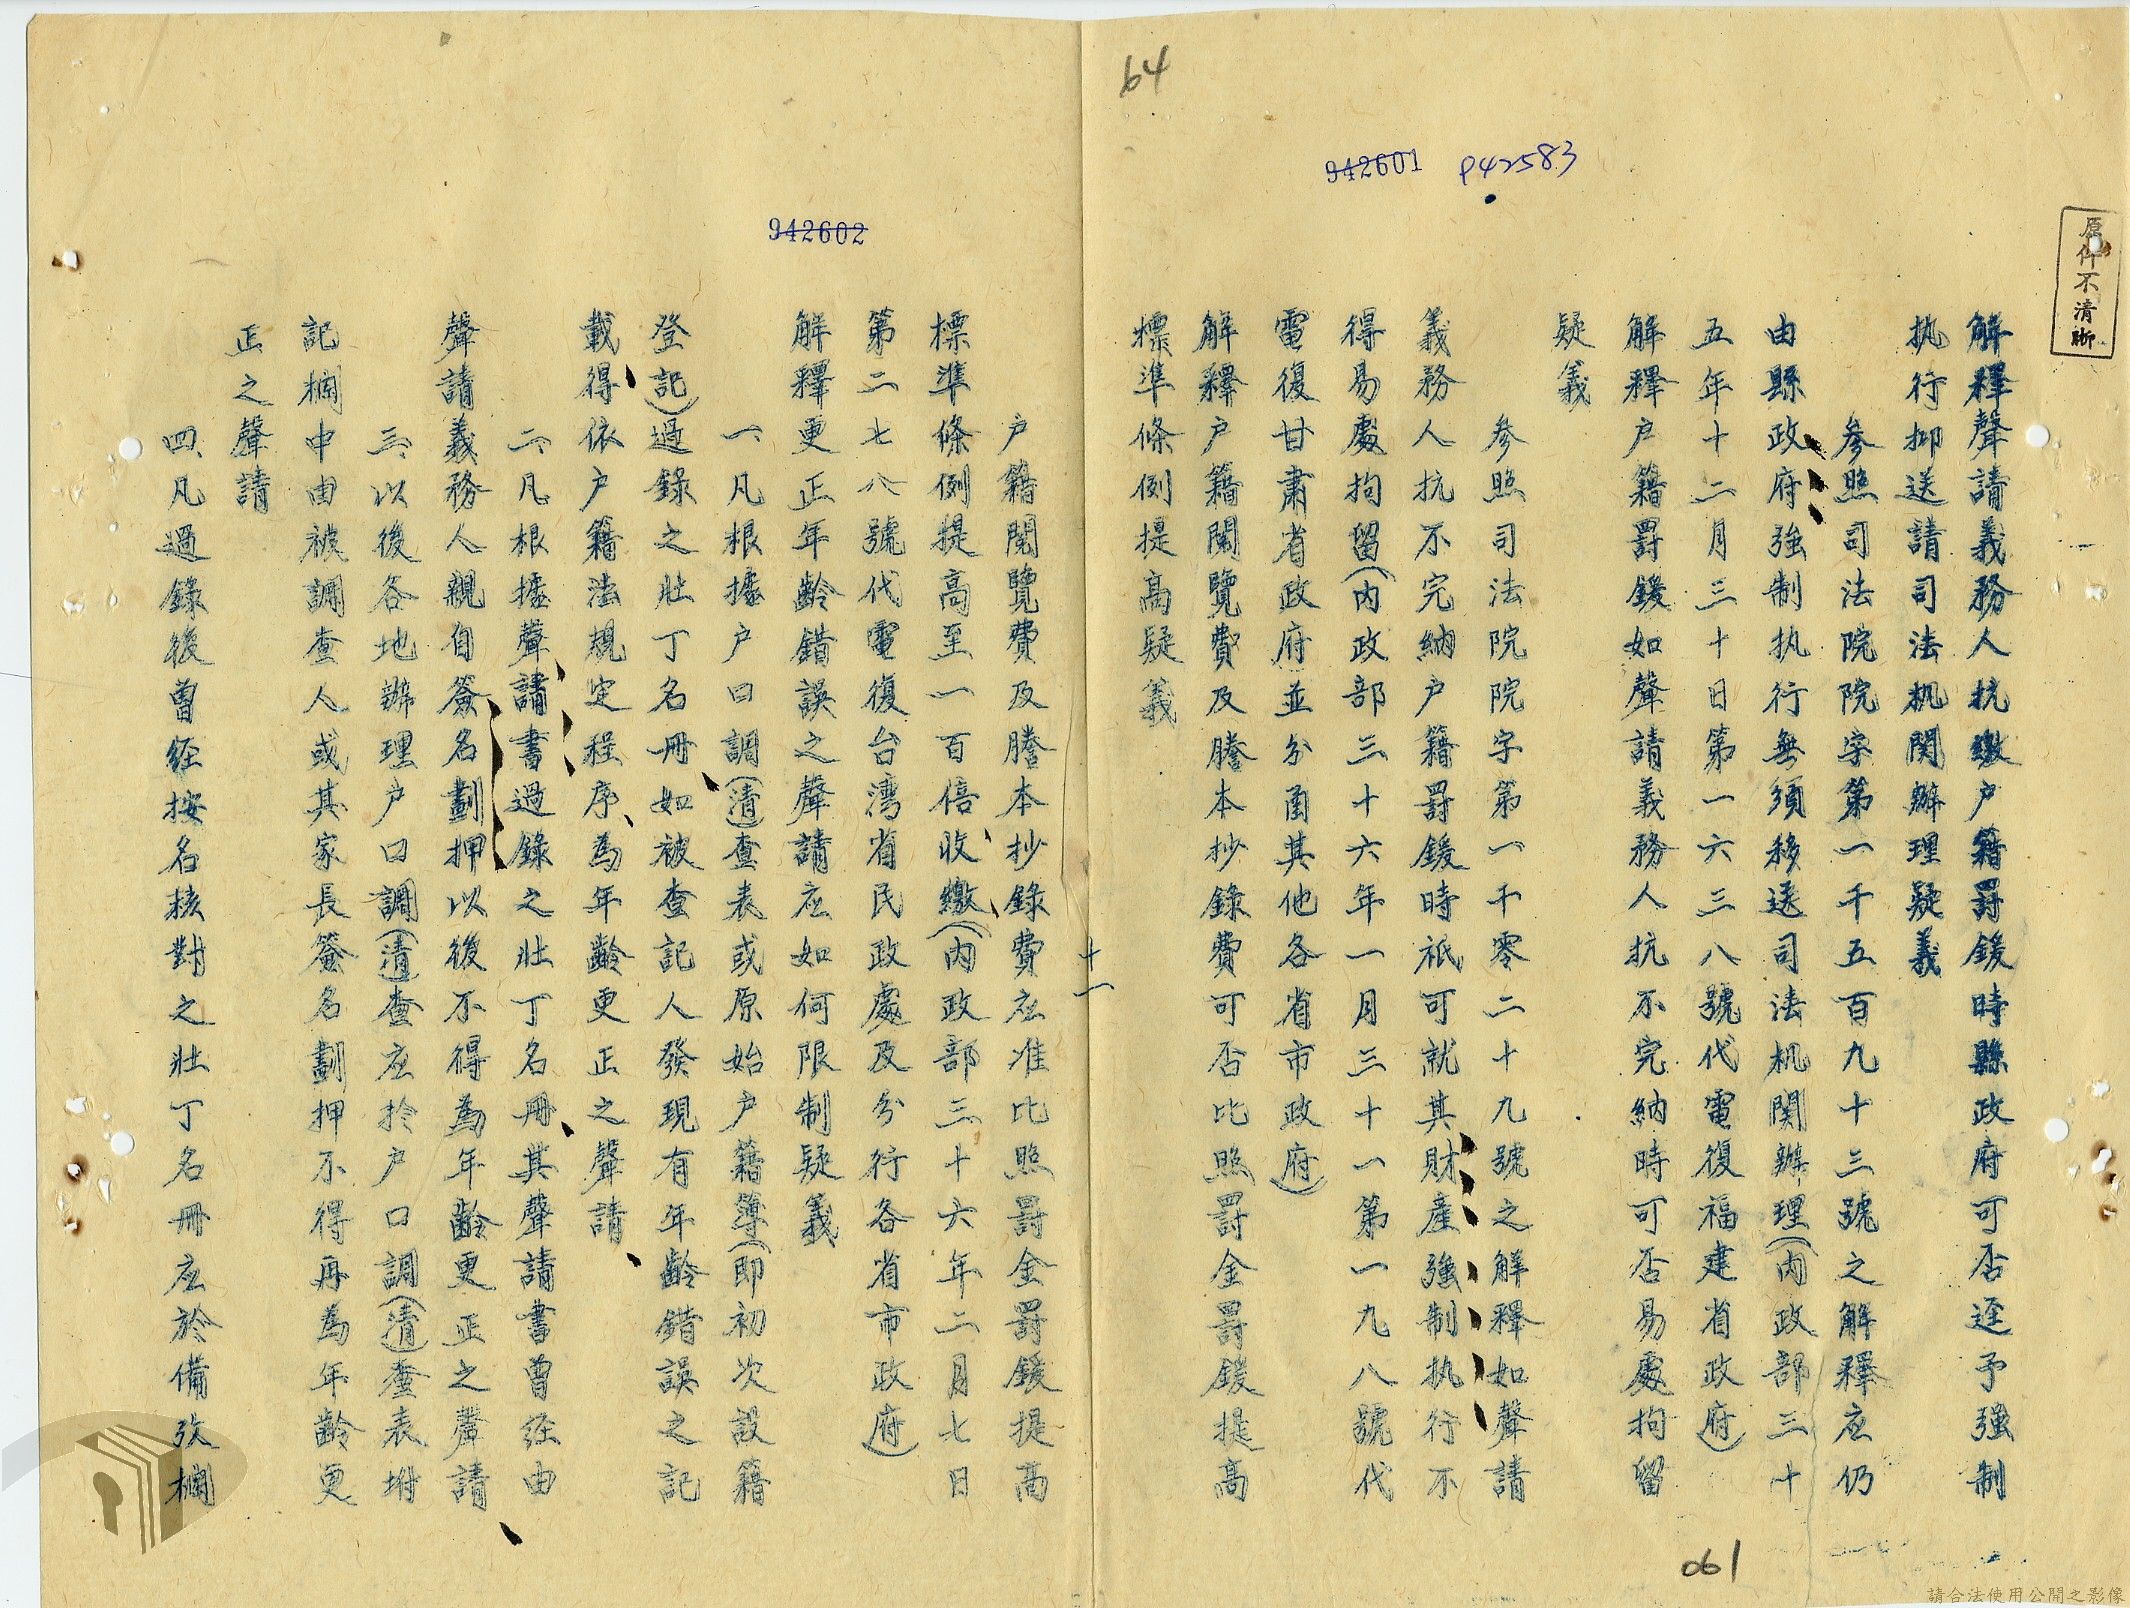 64
942601
P42583
原件不清晰
解釋聲請義務人抗繳户籍罰鍰時縣政府可否逕予强制
执行抑送請司法机関辦理疑義
參照司法院院字第一千五百九十三號之解釋应仍
由縣政府強制执行無須移送司法机関辦理(內政部三十
五年十二月三十日第一六三八號代電復福建省政府)
解釋户籍罰鍰如聲請義務人抗不完納時可否易處拘留
疑義
參照司法院院字第一千零二十九號之解釋如聲請
義務人抗不完納户籍罰鍰時祇可就其財產強制执行不
得易處拘留(內政部三十六年一月三十一第一九八號代
電復甘肅省政府並分函其他各省市政府)
解釋户籍閱覽費及謄本抄錄費可否比照罰金罰鍰提高
標準條例提高疑義
061
十一
942602
户籍閱覽費及謄本抄錄費应准比照罰金罰鍰提高
標準條例提高至一百倍收繳(內政部三十六年二月七日
第二七八號代電復台湾省民政處及分行各省市政府)
解釋更正年齡錯誤之聲請应如何限制疑義
一、凡根據户口調(清)查表或原始户籍簿(即初次設籍
登記)過錄之壯丁名冊如被查記人發現有年齡錯誤之記
載得依户籍法規定程序為年齡更正之聲請
二、凡根據聲請書過錄之壯丁名冊其聲請書曾经由
聲請義務人親自簽名劃押以後不得為年齡更正之聲請
三、以後各地辦理户口調(清)查应於户口調(清)查表坿
記欄中由被調查人或其家長簽名劃押不得再為年齡更
正之聲請
四、凡過錄後曾经按名核對之壯丁名冊应於備攷欄
請合法使用公開之影像